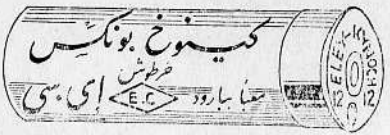 كينوخ بونكس
خرطوش
معبأ ببارود E.C. إى. سى
ELEY-KYNOCH
12 12